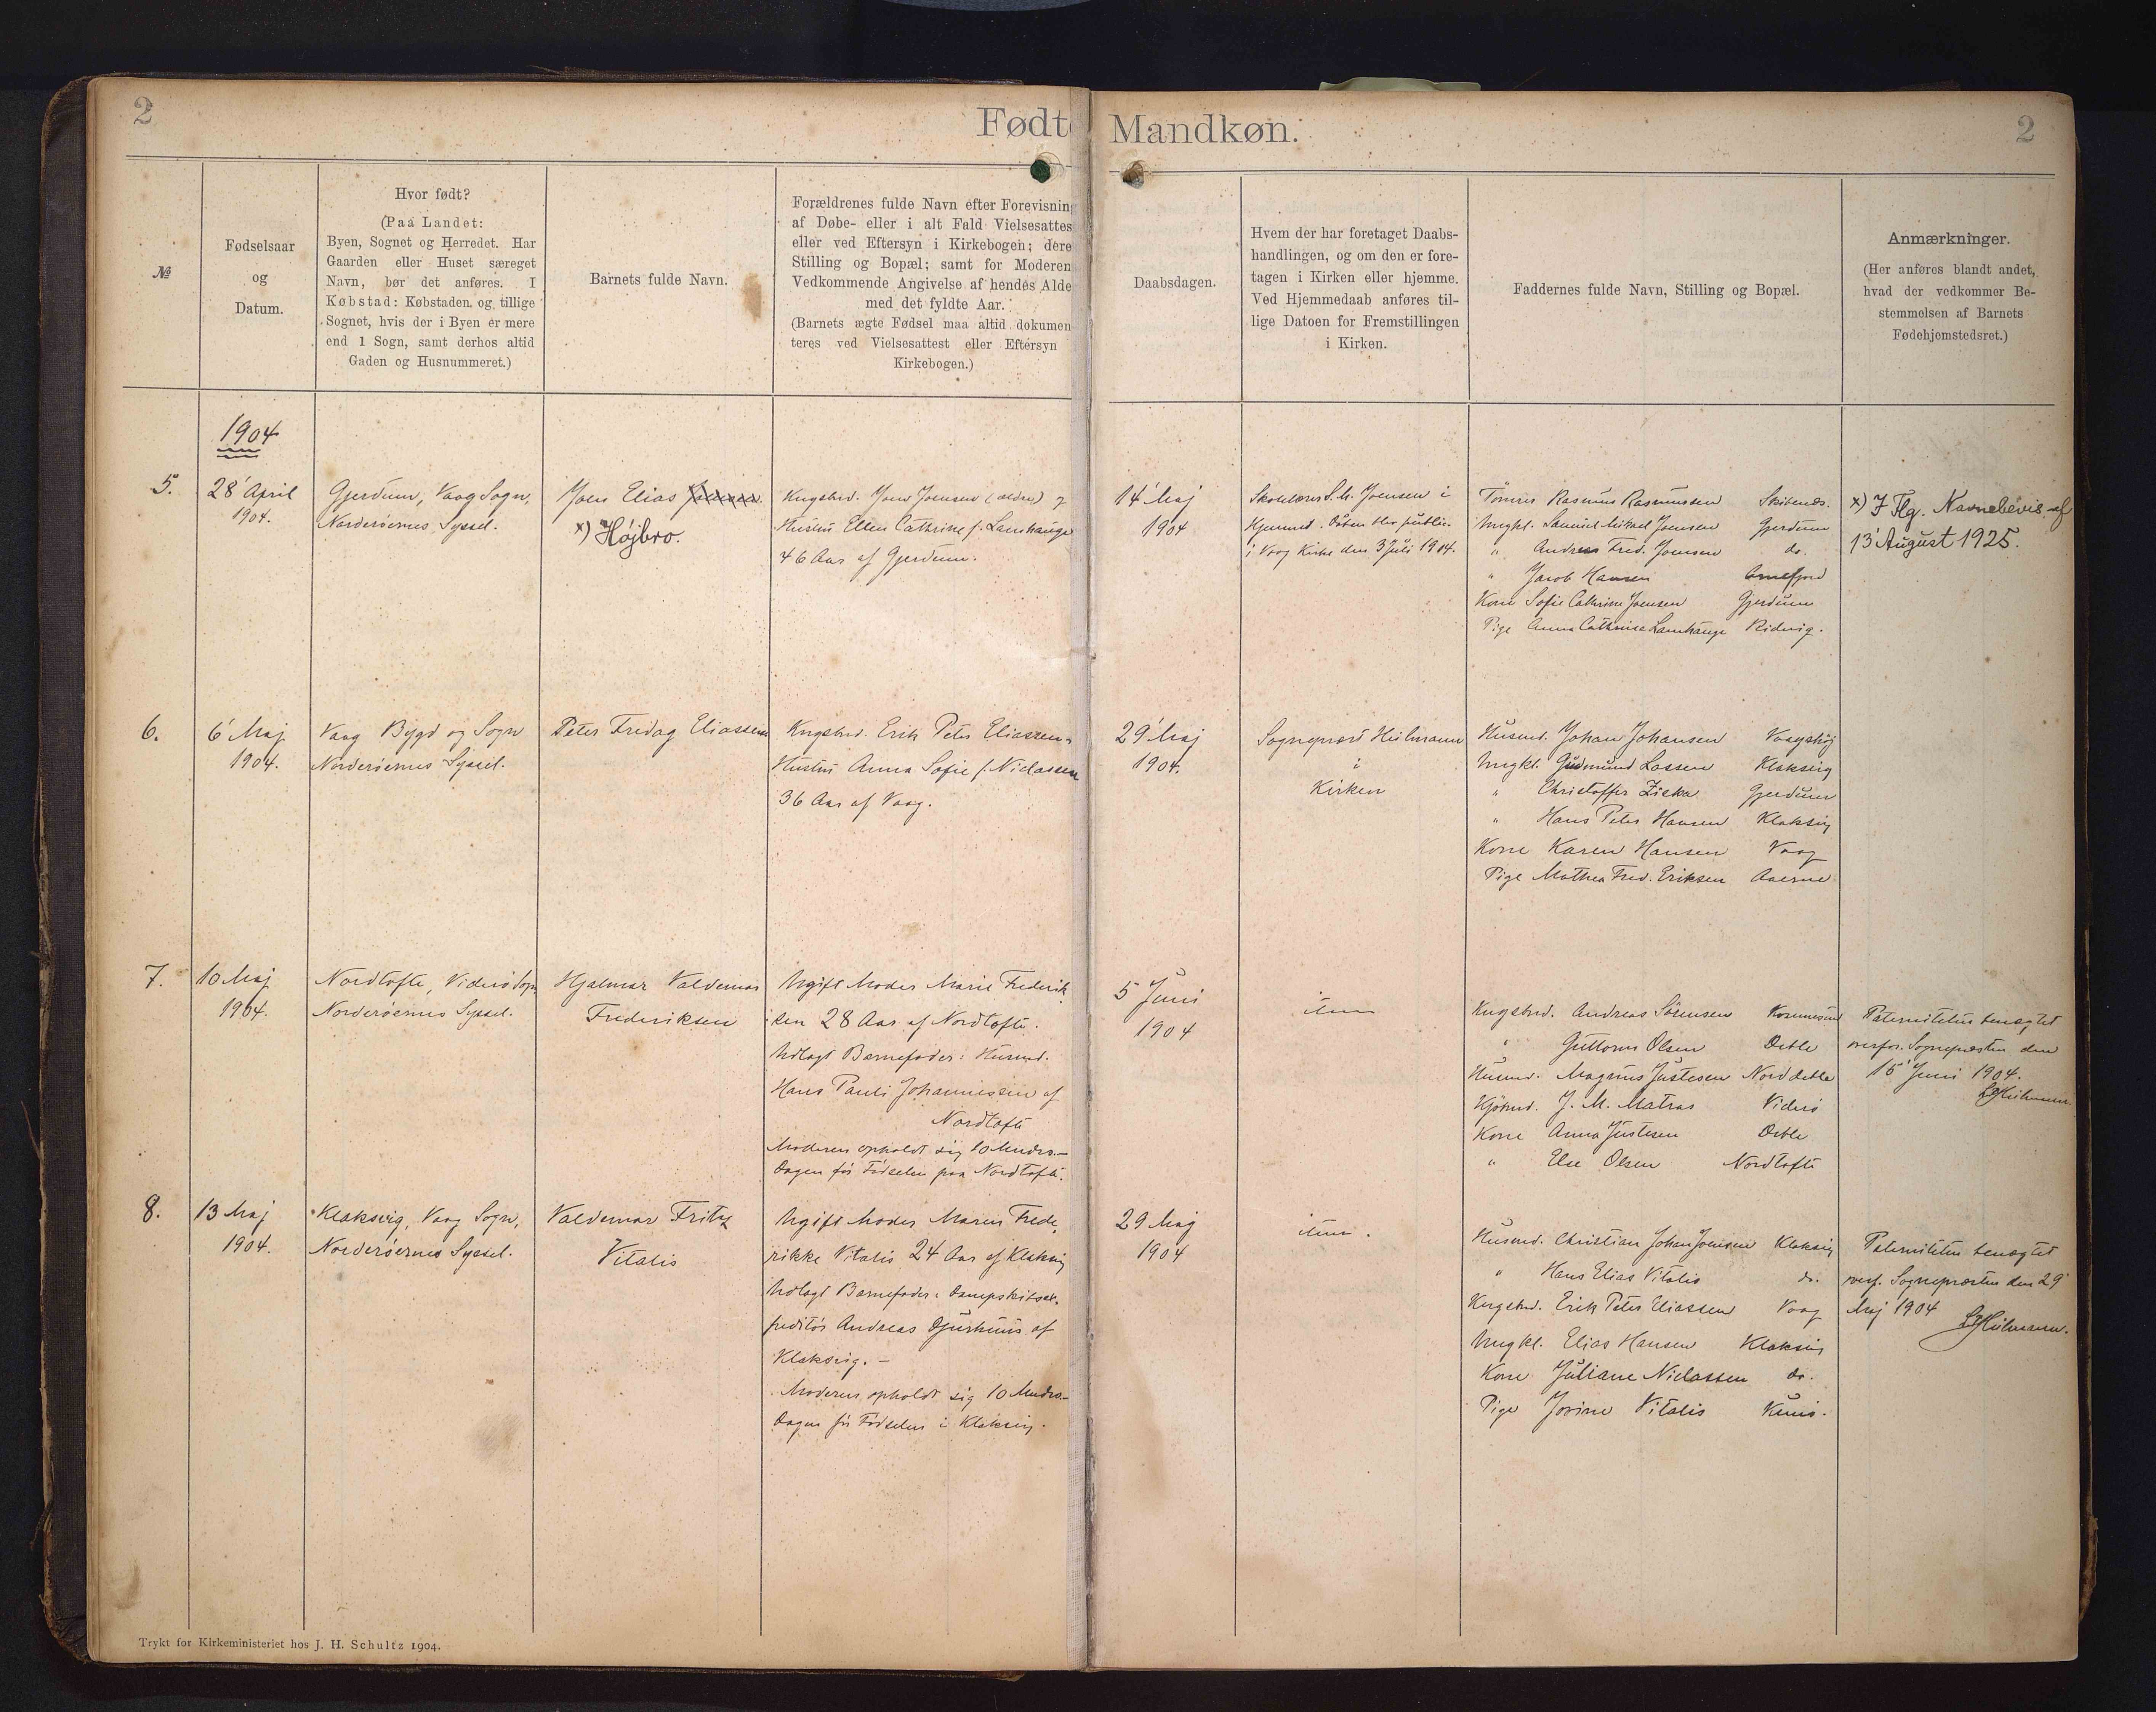 2
Fødte
Mandkøn.
2
№
Fødselsaar
og
Datum.
Hvor født?
(Paa Landet:
Byen, Sognet og Herredet. Har
Gaarden eller Huset særeget
Navn, bør det anføres. I
Købstad: Købstaden og tillige
Sognet, hvis der i Byen er mere
end 1 Sogn, samt derhos altid
Gaden og Husnummeret.)
Barnets fulde Navn.
Forældrenes fulde Navn efter Forevisning
af Døbe- eller i alt Fald Vielsesattes
eller ved Eftersyn i Kirkebogen; dere
Stilling og Bopæl; samt for Moderen
Vedkommende Angivelse af hendes Alde
med det fyldte Aar.
(Barnets ægte Fødsel maa altid dokumen
teres ved Vielsesattest eller Eftersyn
Kirkebogen.)
Daabsdagen.
Hvem der har foretaget Daabs-
handlingen, og om den er fore-
tagen i Kirken eller hjemme.
Ved Hjemmedaab anføres til-
lige Datoen for Fremstillingen
i Kirken.
Faddernes fulde Navn, Stilling og Bopæl.
Anmærkninger.
(Her anføres blandt andet,
hvad der vedkommer Be-
stemmelsen af Barnets
Fødehjemstedsret.)
1904
5.
28' April
1904.
Gjerdum, Vaag Sogn,
Norderöernes Syssel.
Joen Elias Joensen.
x) Højbro.
Kngsbd. Joen Joensen (ældre) og
Hustru Ellen Cathrine f. Lamhauge
46 Aar af Gjerdum.
14' Maj
1904
Skolelærer S. M. Joensen i
Hjemmed. Daaben blev public.
i Vaag Kirke den 3 Juli 1904.
Tömrer Rasmus Rasmussen Skibenæs.
Ungkl. Samuel Mikael Joensen Gjerdum
" Andreas Fred. Joensen do.
" Jacob Hansen Arnefjord
Kone Sofie Cathrine Joensen Gjerdum
Pige Anna Cathrine Lamhauge Ridevig.
x) I Flg. Navnebevis af
13' August 1925.
6.
6' Maj
1904.
Vaag Bygd og Sogn
Norderöernes Syssel.
Peter Fredag Eliassen
Kngsbd. Erik Peter Eliassen
Hustru Anna Sofie f. Niclassen
36 Aar af Vaag.
29' Maj
1904.
Sognepræst Heilmann
i
Kirken
Husmd. Johan Johansen Vaagshöj
Ungkl. Gudmund Lassen Klaksvig
" Christoffer Ziska Gjerdum
" Hans Peter Hansen Klaksvig
Kone Karen Hansen Vaag
Pige Mathea Fred. Eriksen Aaerne
7.
10 Maj
1904.
Nordtofte, Viderö Sogn
Norderöernes Syssel.
Hjalmar Valdemar
Frederiksen
Ugift Moder Marie Frederik
sen 28 Aar af Nordtofte.
Udlagt Barnefader: Husmd.
Hans Pauli Johannessen af
Nordtofte
Moderen opholdt sig 10 Mndrs.-
Dagen för Födselen paa Nordtofte.
5 Juni
1904
item
Kngsbd. Andreas Sörensen Kvannesund
" Guttorm Olsen Deble
Husmd. Magnus Justesen Norddeble
Kjöbmd. J. M. Matras Viderö
Kone Anna Justesen Deble
" Else Olsen Nordtofte
Paterniteten benægtet
overfor Sognepræsten den
15' Juni 1904.
Heilmann.
8.
13 Maj
1904.
Klaksvig, Vaag Sogn,
Norderöernes Syssel.
Valdemar Fritz
Vitalis
Ugift Moder Maren Frede
rikke Vitalis 24 Aar af Klaksvig
Udlagt Barnefader: Dampskibsex-
peditör Andreas Djurhuus af
Klaksvig. -
Moderen opholdt sig 10 Mndrs.-
Dagen för Födselen i Klaksvig.
29 Maj
1904
item.
Husmd. Christian Johan Joensen Klaksvig
" Hans Elias Vitalis do.
Kngsbd. Erik Peter Eliassen Vaag
Ungkl. Elias Hansen Klaksvig
Kone Juliane Niclassen do.
Pige Josine Vitalis Kunö.
Paterniteten benægtet
overf. Sognepræsten den 29'
Maj 1904
Heilmann.
Trykt for Kirkeministeriet hos J. H. Schultz 1904.